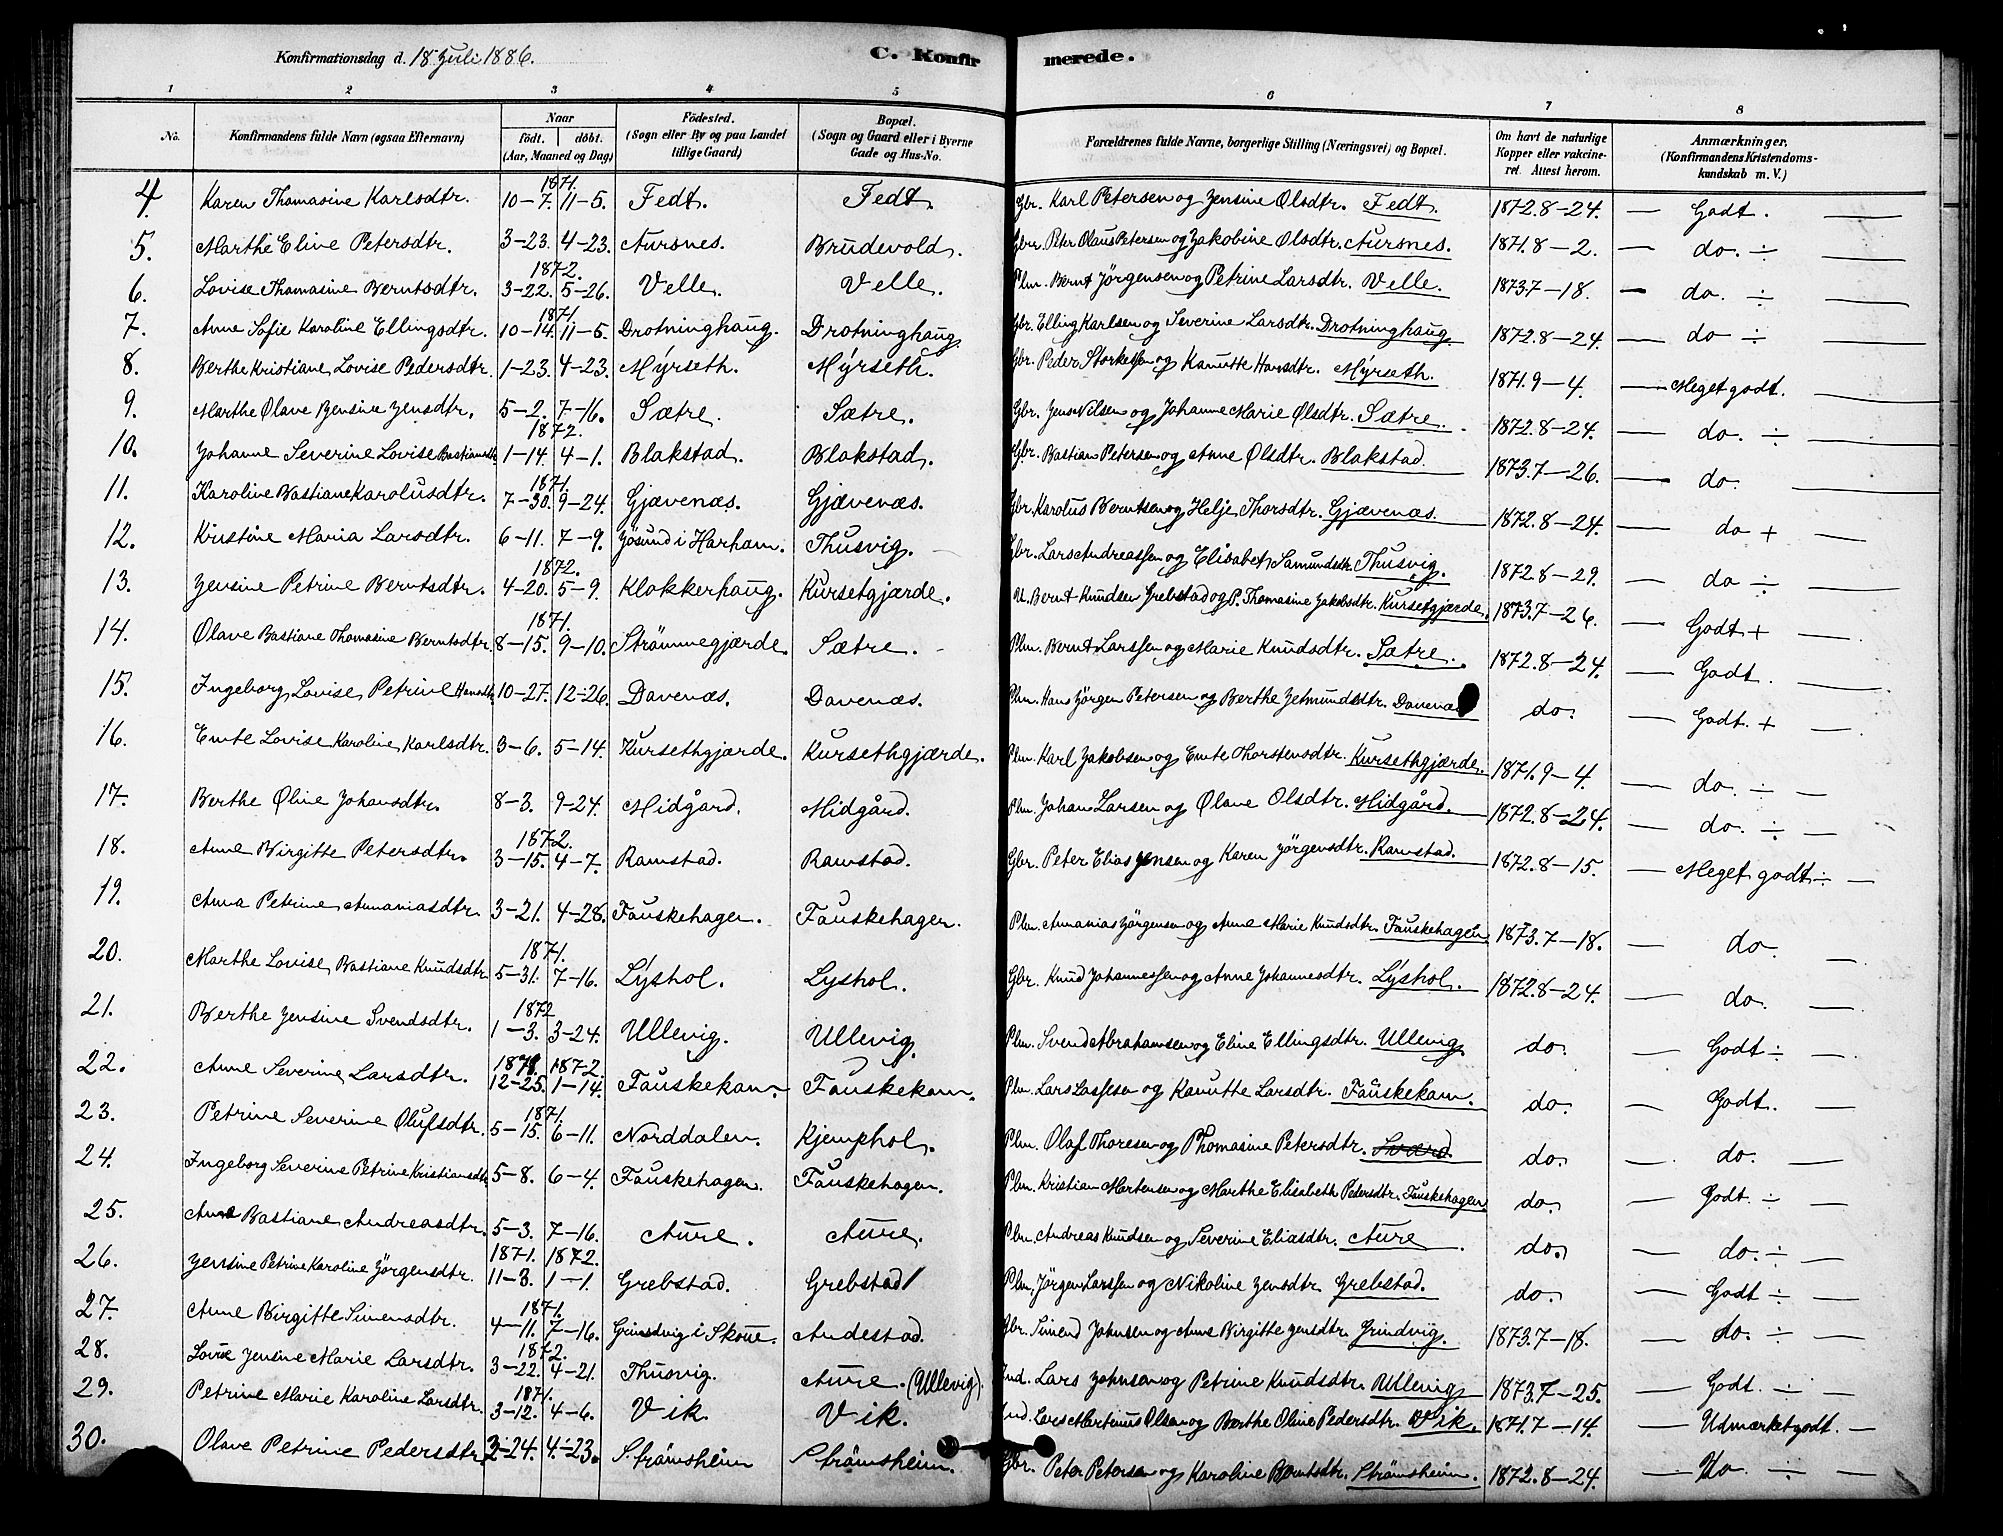 Konfirmationsdag d. 18 Juli 1886.
C. Konfirmerede.
1 2 3 4 5 6 7 8
No. Konfirmandens fulde Navn (ogsaa Efternavn) Naar födt. döbt. (Aar, Maaned og Dag) Födested. (Sogn eller By og paa Landet tillige Gaard) Bopæl. (Sogn og Gaard eller i Byerne Gade og Hus-No. Forældrenes fulde Navne, borgerlige Stilling (Næringsvei) og Bopæl. Om havt de naturlige Kopper eller vakcineret. Attest herom. Anmærkninger. (Konfirmandens Kristendomskundskab m. V.)
1871.
4. Karen Thomasine Karlsdtr. 10-7. 11-5. Fedt. Fedt. Gbr. Karl Petersen og Jensine Olsdtr. Fedt. 1872.8-24. — Godt. —
5. Marthe Eline Petersdtr. 3-23. 4-23. Aursnes. Brudevold. Gbr. Peter Olaus Petersen og Jakobine Olsdtr. Aursnes. 1871.8-2. — do. ÷ —
1872.
6. Lovise Thomasine Berntsdtr. 3-22. 5-26. Velle. Velle. Plm. Bernt Jörgensen og Petrine Larsdtr. Velle. 1873.7-18. — do. ÷ —
1871.
7. Anne Sofie Karoline Ellingsdtr. 10-14. 11-5. Drotninghaug. Drotninghaug. Gbr. Elling Karlsen og Severine Larsdtr. Drotninghaug. 1872.8-24. — do ÷ —
8. Berthe Kristiane Lovise Pedersdtr. 1-23. 4-23. Myrseth. Myrseth. Gbr. Peder Storkersen og Kanutte Hansdtr. Myrseth. 1871.9-4. — Meget godt. —
9. Marthe Olave Jensine Jensdtr. 5-2. 7-16. Sætre. Sætre. Gbr. Jens Nilsen og Johanne Marie Olsdtr. Sætre. 1872.8-24. — do. ÷ —
1872.
10. Johanne Severine Lovise Bastiansdtr. 1-14. 4-1. Blakstad. Blakstad. Gbr. Bastian Petersen og Anne Olsdtr. Blakstad. 1873.7-26. — do. —
1871.
11. Karoline Bastiane Karolusdtr. 7-30. 9-24. Gjævenæs. Gjævenæs. Gbr. Karolus Berntsen og Helje Thorsdtr. Gjævenæs. 1872.8-24. — do + —
12. Kristine Maria Larsdtr. 6-11. 7-9. Jösund i Harham. Thusvig. — Gbr. Lars Andreassen og Elisabet Samundsdtr. Thusvig. 1872.8-29. — do ÷ —
1872.
13. Jensine Petrine Berntsdtr. 4-20. 5-9. Klokkerhaug. Kursetgjærde. U. Bernt Knudsen Grebstad og P. Thomasine Jakobsdtr. Kursetgjærde. 1873.7-26. — Godt + —
1871.
14. Olave Bastiane Thomasine Berntsdtr. 8-15. 9-10. Strömmegjærde. Sætre. - Plm. Bernt Larssen og Marie Knudsdtr. Sætre. 1872.8-24. — Godt. —
15. Ingeborg Lovise Petrine Hansdtr. 10-27. 12-26. Davenæs. Davenæs. Plm. Hans Jörgen Petersen og Berthe Jetmundsdtr. Davenæs do. — Godt. + —
16. Emte Lovise Karoline Karlsdtr. 3-6. 5-14. Kursethgjærde. Kursethgjærde. Plm. Karl Jakobsen og Emte Thorstensdtr. Kursethgjærde. 1871.9-4. — do. ÷ —
17. Berthe Oline Johansdtr. 8-3. 9-24. Midgård. Midgård. Plm. Johan Larsen og Olave Olsdtr. Midgård. 1872.8-24. — do. ÷ —
1872.
18. Anne Birgitte Petersdtr. 3-15. 4-7. Ramstad. Ramstad. Gbr. Peter Elias Jensen og Karen Jörgensdtr. Ramstad. 1872.8-15. — Meget godt ÷ —
19. Anna Petrine Annaniasdtr. 3-21. 4-28. Fauskehagen. Fauskehagen. Plm. Annanias Jörgensen og Anne Marie Knudsdtr. Fauskehagen 1873.7-18. — do. —
1871.
20. Marthe Lovise Bastiane Knudsdtr. 5-31. 7-16. Lyshol. Lyshol. Gbr. Knud Johannessen og Anne Johannesdtr. Lyshol. 1872.8-24. — do. —
1872
21. Berthe Jensine Svendsdtr. 1-3. 3-24. Ullevig. Ullevig. Plm. Svend Abrahamsen og Eline Ellingsdtr. Ullevig. do. — Godt ÷ —
1871. 1872.
22. Anne Severine Larsdtr. 12-25. 1-14. Fauskekam. Fauskekam. Plm. Lars Lassesen og Kanutte Larsdtr. Fauskekam. do. — Godt. —
1871.
23. Petrine Severine Olufsdtr. 5-15. 6-11. Norddalen. Kjemphol. Plm. Olaf Thoresen og Thomasine Petersdtr. do. — do. —
24. Ingeborg Severine Petrine Kristiansdtr. 5-8. 6-4. Fauskehagen. Fauskehagen. Plm. Kristian Mortensen og Marthe Elisabeth Petersdtr. Fauskehagen do. — Godt. ÷
25. Ane Bastiane Andreasdtr. 5-3. 7-16. Aure. Aure. Plm. Andreas Knudsen og Severine Eliasdtr. Aure. do. — do. ÷ —
1871. 1872.
26. Jensine Petrine Karoline Jörgensdtr. 11-3. 1-1. Grebstad. Grebstad Plm. Jörgen Larssen og Nikoline Jensdtr. Grebstad. do. — Godt ÷ —
1871.
27. Anne Birgitte Simensdtr. 4-11. 7-16. Grindvig i Skoue. Andestad. Gbr. Simend Johnsen og Anne Birgitte Jensdtr. Grindvig. 1873.7-18. — do. ÷ —
1872.
28. Lovise Jensine Marie Larsdtr. 3-22. 4-21. Thusvig. Aure. (Ullevig). Ind. Lars Johnsen og Petrine Knudsdtr. Ullevig 1873.7-25. — Godt. ÷ —
1871.
29. Petrine Marie Karoline Larsdtr. 3-12. 4-6. Vik Vik. Ind. Lars Martinus Olsen og Berthe Oline Pedersdtr. Vik. 1871.7-14. — Udmærket godt. —
30. Olave Petrine Pedersdtr. 2-24. 4-23. Strömsheim Strömsheim. Gbr. Peter Petersen og Karoline Berntsdtr. Strömsheim. 1872.8-24. — Do. ÷ —